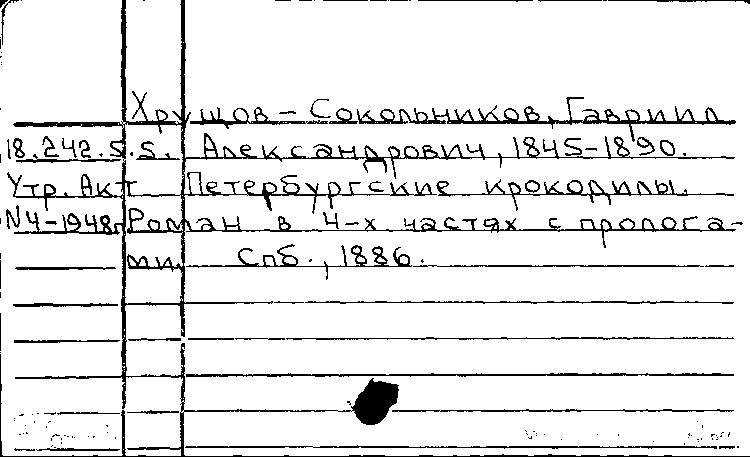 Хрущов – Сокольников, Гавриил
18.242.5.5. Александрович, 1845-1890.
Утр. Акт Петербургские крокодилы.
N4-1948г. Роман в 4-х частях с пролога-
ми. Спб., 1886.